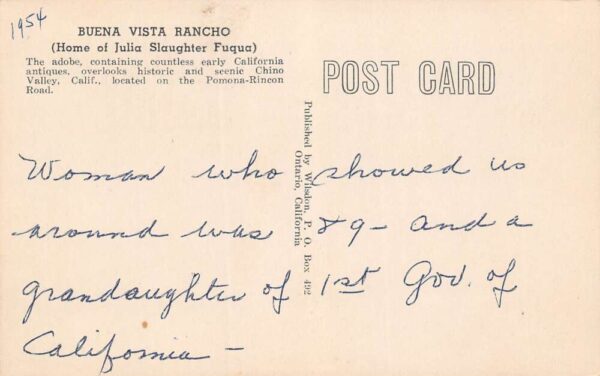 1954
BUENA VISTA RANCHO
(Home of Julia Slaughter Fuqua)
The adobe, containing countless early California
antiques, overlooks historic and scenic Chino
Valley, Calif., located on the Pomona-Rincon
Road.
POST CARD
Published by Wilsdon, P. O. Box 492
Ontario, California
Woman who showed us
around was 89 - and a
grandaughter of 1st Gov. of
California -